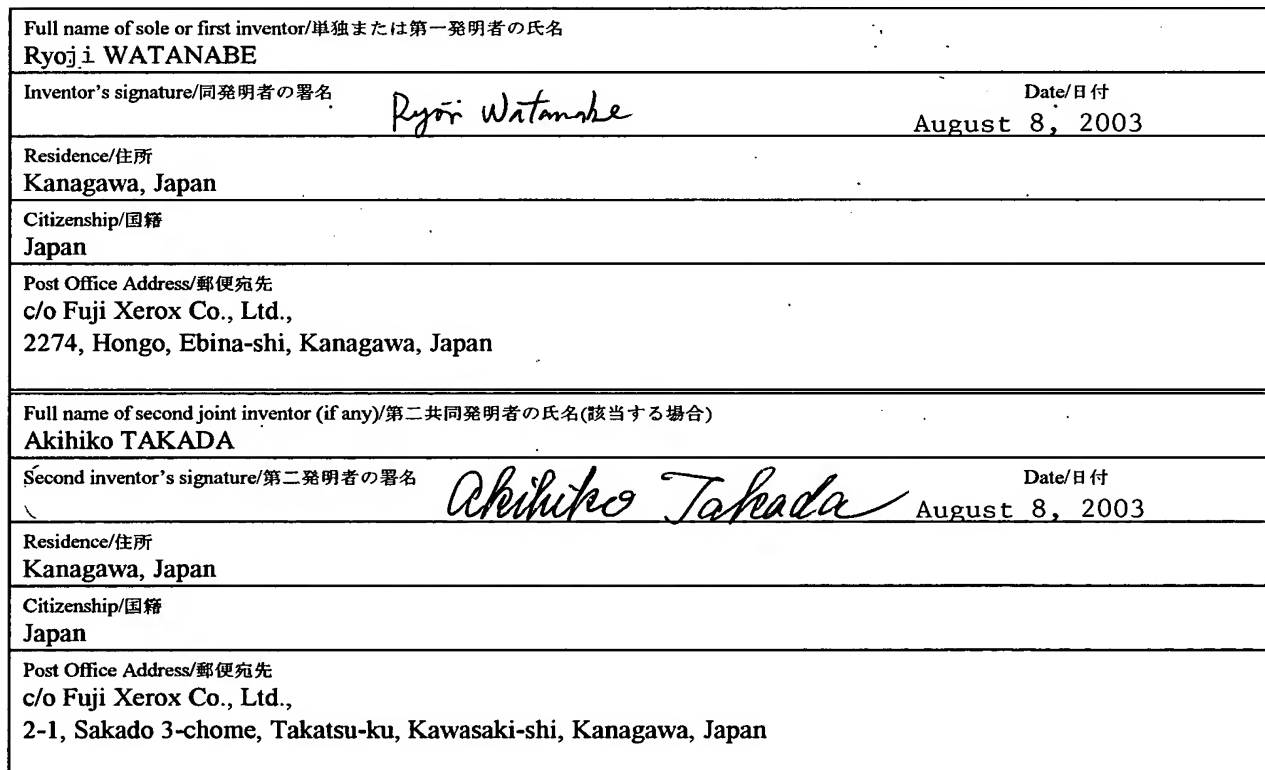 Full name of sole or first inventor/単独または第一発明者の氏名
Ryoji WATANABE
Inventor's signature/同発明者の署名
Ryoji Watanabe
Date/日付
August 8, 2003
Residence/住所
Kanagawa, Japan
Citizenship/国籍
Japan
Post Office Address/郵便宛先
c/o Fuji Xerox Co., Ltd.,
2274, Hongo, Ebina-shi, Kanagawa, Japan
Full name of second joint inventor (if any)/第二共同発明者の氏名(該当する場合)
Akihiko TAKADA
Second inventor's signature/第二発明者の署名
Akihiko Takada
Date/日付
August 8, 2003
Residence/住所
Kanagawa, Japan
Citizenship/国籍
Japan
Post Office Address/郵便宛先
c/o Fuji Xerox Co., Ltd.,
2-1, Sakado 3-chome, Takatsu-ku, Kawasaki-shi, Kanagawa, Japan